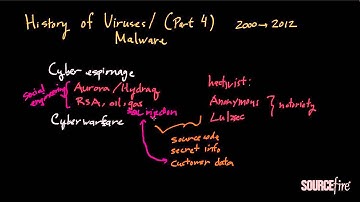 History of Viruses/ (Part 4) 2000→2012
Malware
Cyber espionage
social engineering
Aurora/Hydraq
RSA, oil, gas
SQL injection
Cyberwarfare
hacktivist:
Anonymous
Lulzsec
notoriety
source code
secret info
customer data
SOURCEfire®